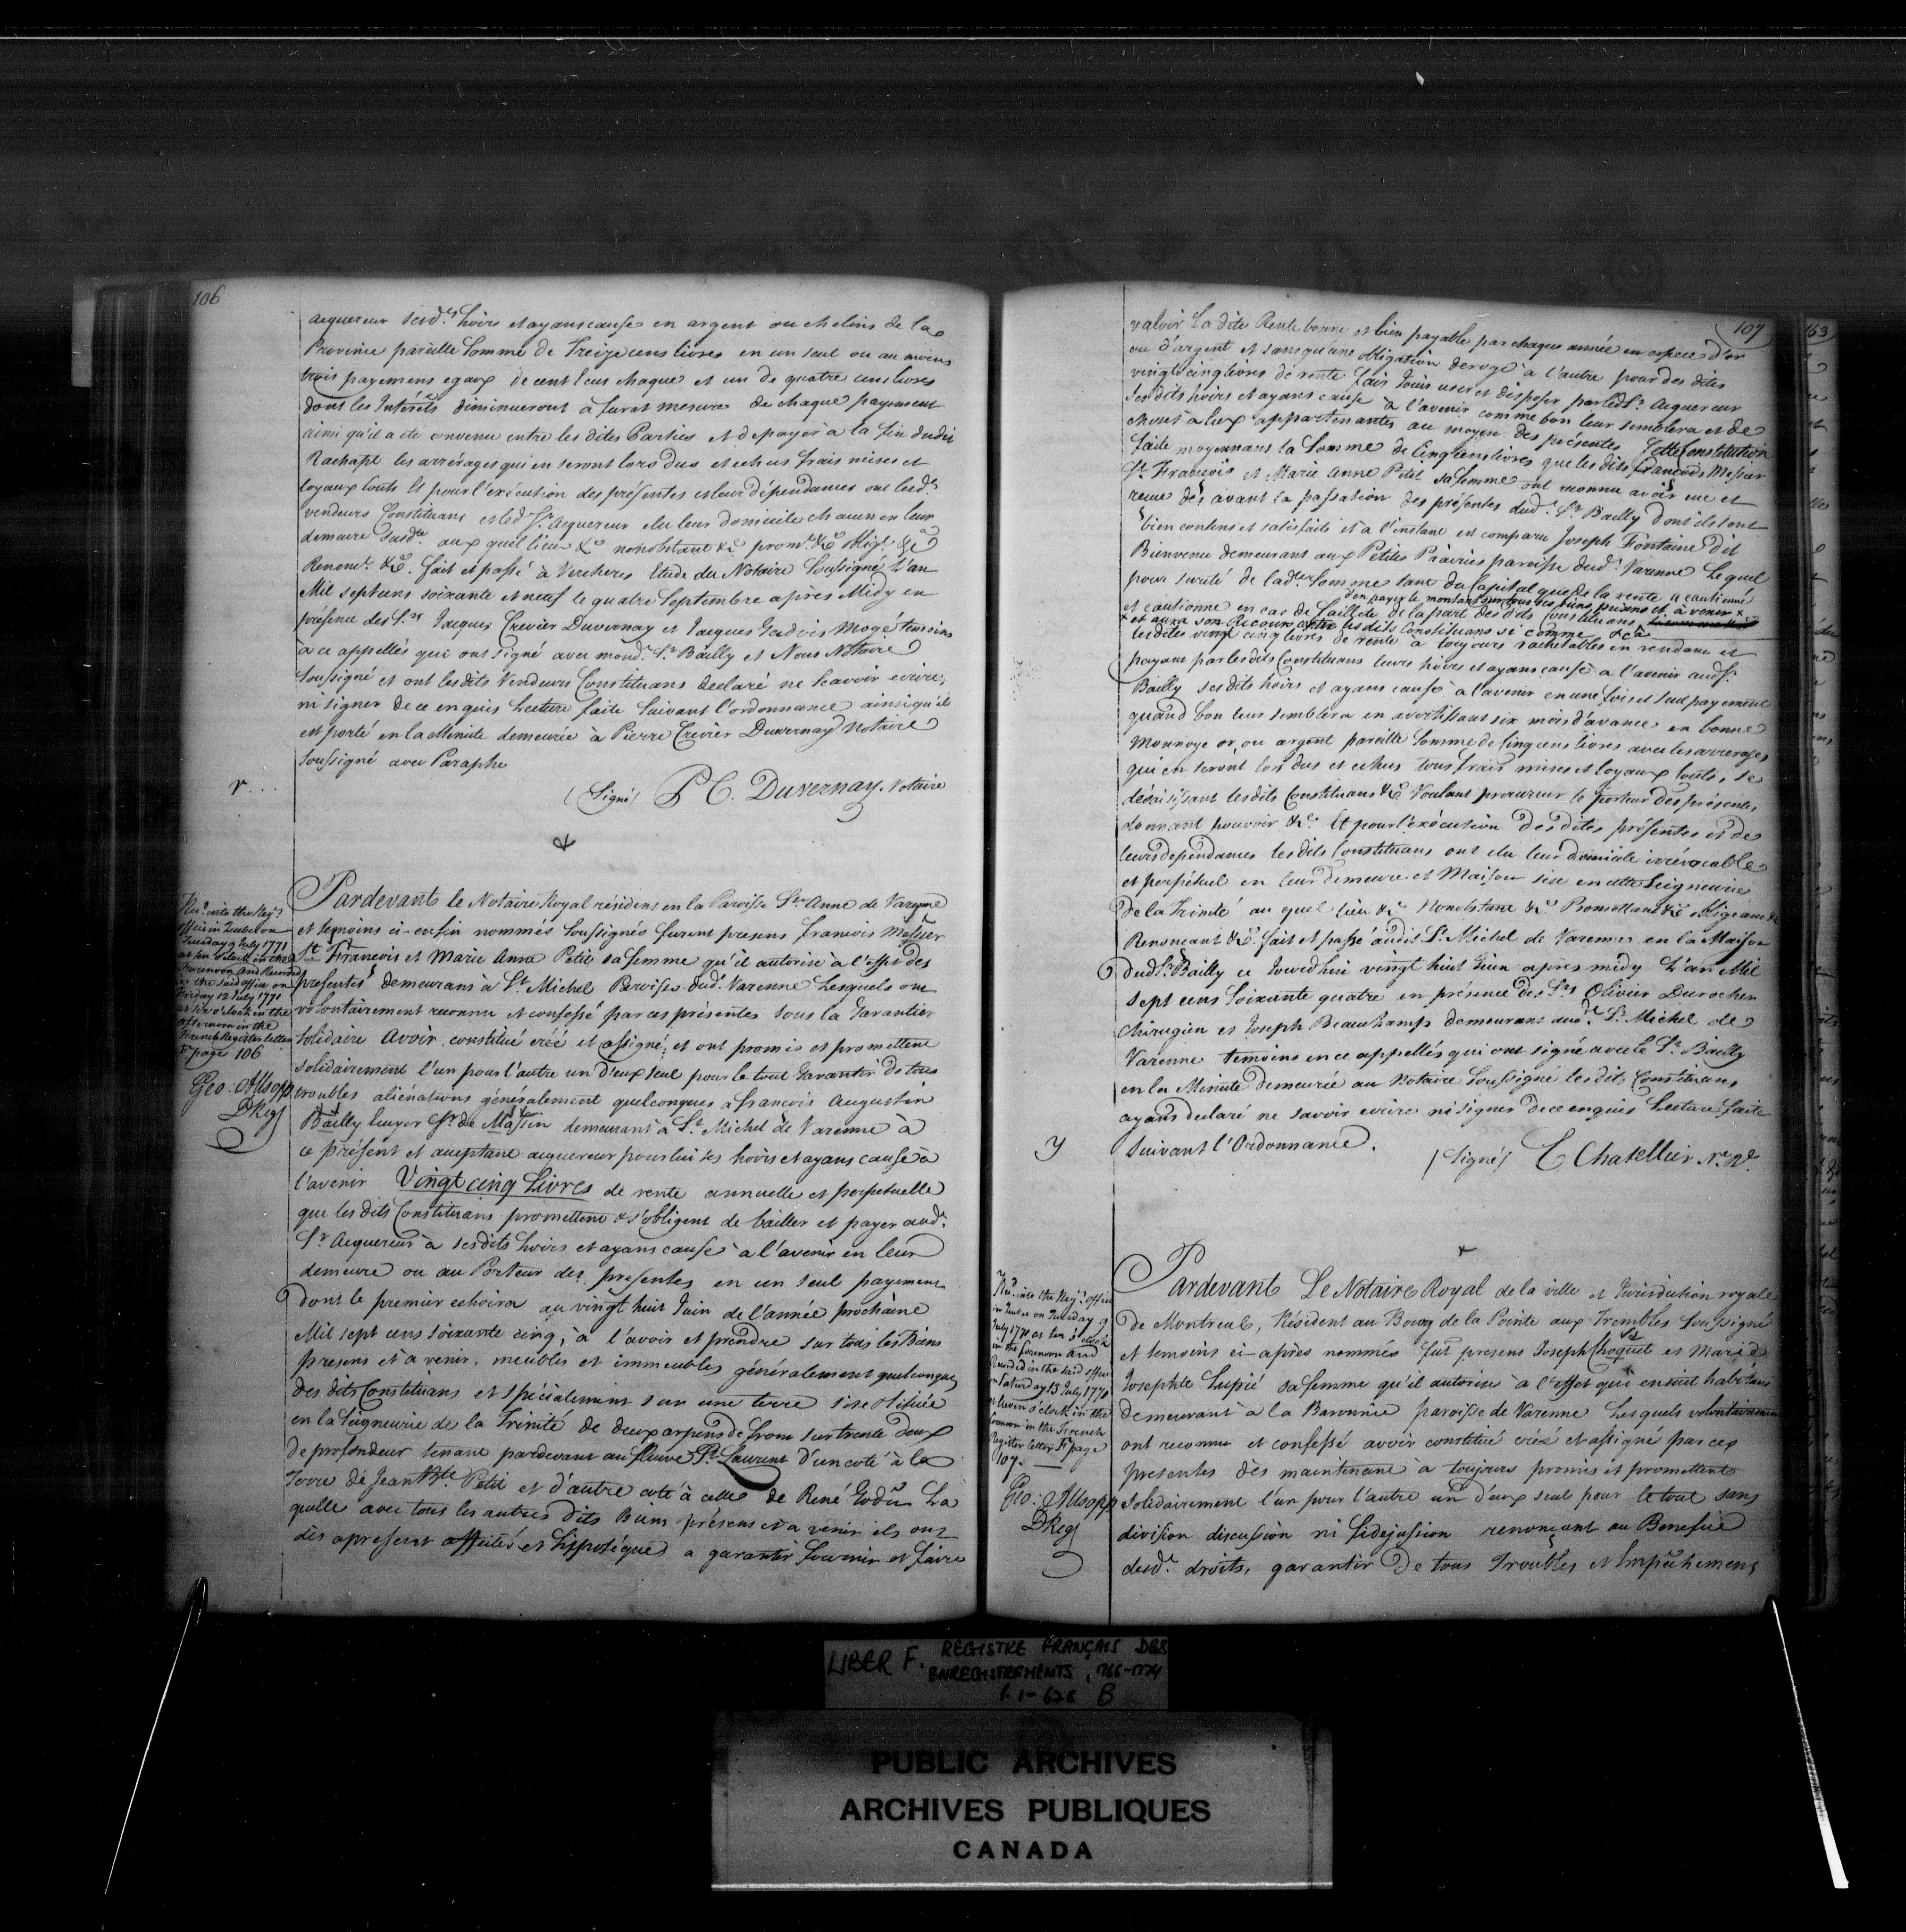 106
acquereur sesd.ts hoirs et ayans cause en argent ou chelins de la
Province pareille Somme de Treize cens livres en un seul ou au moins
trois payemens egaux de cent ecus chaque et un de quatre cens livres
dont les Intérêts diminueront à fur et mesure de chaque payement
ainsi qu'il a été convenu entre les dites Parties et de payer à la fin dudit
Rachapt les arrérages qui en seront lors dus et echus frais mises et
loyaux couts Et pour l'exécution des présentes et leurs dépendances ont lesd.ts
vendeurs Constituans et led. Sr. acquereur elu leur domicile chacun en leur
demeure susd.te aux quel lieu &c nonobstant &c prom.t &c oblig.t &c
Renonc.t &c. fait et passé à Vercheres Etude du Notaire Soussigné L'an
Mil sept cens soixante et neuf le quatre Septembre après Midy en
présence des Srs Jacques Crevier Duvernay et Jacques Gadois Mogé temoins
à ce appellés qui ont signé avec mond. Sr. Bailly et Nous Notaire
Soussigné et ont les dits Vendeurs Constituans declaré ne Scavoir écrire,
ni signer de ce enquis Lecture faite Suivant l'ordonnance ainsi qu'il
est porté en la Minute demeurée à Pierre Crevier Duvernay Notaire
soussigné avec Paraphe
(Signé) P C. Duvernay. Notaire
Rec.d into the Reg.s
office in Quebec on
Tuesday 9 July 1771
at ten o'clock in the
Forenoon And Recorded
in the said office on
Friday 12 July 1771
at six o'clock in the
afternoon in the
French Register letter
F page 106
Geo: Allsopp
DReg
Pardevant le Notaire Royal résident en la Paroisse Ste Anne de Varenne
et temoins ci-enfin nommés Soussignés furent presens, francois Messier
St. Francois et Marie Anne Petit sa femme qu'il autorise à l'effet des
presentes demeurans à St. Michel Paroisse dud. Varenne Lesquels ont
volontairement reconnu et confessé par ces présentes sous la Garantie
Solidaire avoir constitué créé et assigné, et ont promis et promettent
solidairement l'un pour l'autre un d'eux seul pour le tout Garantir de tous
troubles aliénations généralement quelconques a francois Augustin
Bailly Ecuyer Sr. de Massin demeurant à St. Michel de Varenne à
ce présent et acceptant acquereur pour lui ses hoirs et ayans cause à
l'avenir Vingt cinq Livres de rente annuelle et perpetuelle
que les dits Constituans promettent & s'obligent de bailler et payer aud.
Sr. Acquereur à ses dits hoirs et ayans cause à l'avenir en leur
demeure ou au Porteur des presentes en un seul payement
dont le premier echoira au vingt huit Juin de l'année prochaine
Mil sept cens soixante cinq, à l'avoir et prendre sur tous les Biens
presens et à venir, meubles et immeubles généralement quelconques
des dits Constituans et spécialement sur une terre sise et située
en la Seigneurie de la Trinité de deux arpens de front sur trente deux
de profondeur tenant pardevant au fleuve St. Laurent d'un coté à la
Terre de Jean Bte. Petit et d'autre coté à celle de René Godu La
quelle avec tous les autres dits Biens présens et à venir ils ont
dès apresent affectés et hippotéqués a garantir Fournir et faire
107
valoir la dite Rente bonne et bien payable par chaque année en espece d'or
ou d'argent et sans qu'une obligation deroge à l'autre pour des dites
vingt cinq livres de rente fair Jouir user et disposer par led. Sr. Acquereur
ses dits hoirs et ayans cause à l'avenir comme bon leur semblera et de
chose à eux appartenantes au moyen des présentes Cette Constitution
faite moyennant la Somme de Cinq cens livres que les dits francois Messier
St. Francois et Marie Anne Petit sa femme ont reconnu avoir eue et
reçue dès avant la passation des présentes dud. Sr. Bailly dont ils sont
bien contens et satisfaits et à l'instant est comparu Joseph Fontaine dit
Bienvenu demeurant aux Petites Prairies paroisse dud. Varenne Lequel
pour sureté de lad.te Somme tant du Capital que de la rente a cautionné
d'en payer le montant sur tous ses biens présens et à venir x
et cautionne en cas de faillite de la part des dits Constituans
x et aura son Recours contre les dits Constituans si comme &ca
les dites vingt cinq livres de rente à toujours rachetables en rendant et
payant par les dits Constituans leurs hoirs et ayans cause à l'avenir aud Sr.
Bailly ses dits hoirs et ayans cause à l'avenir en une fois et seul payement
quand bon leur semblera en avertissant six mois d'avance en bonne
Monnoye or, ou argent pareille Somme de Cinq cens livres avec les arrerages
qui en seront lors dus et echus tous frais mises et loyaux Couts, se
désaisissant les dits Constituans &c Voulant procureur le porteur des présentes,
donnant pouvoir &c. Et pour l'exécution des dites présentes et de
leurs dependances les dits Constituans ont elu leur domicile irrévocable
et perpétuel en leur demeure et Maison sise en cette Seigneurie
de la Trinité au quel lieu &c Nonobstant &c Promettant &c obligeant &c
Renoncant &c. fait et passé audit St. Michel de Varennes en la Maison
dud. Sr. Bailly ce Jourd'hui vingt huit Juin après midy L'an Mil
sept cens Soixante quatre en présence des Srs Olivier Durocher
Chirugien et Joseph Beauchamps demeurant aud. St. Michel de
Varenne temoins en ce appellés qui ont signé avec le Sr. Bailly
en la Minute demeurée au Notaire Soussigné les dits Constituans
ayans declaré ne savoir ecrire ni signer de ce enquis Lecture faite
suivant l'Ordonnance.
(Signé) C Chatellier Nre. Rl.
Rec.d into the Reg.s office
in Quebec on Tuesday 9
July 1771 at ten o'clock
in the forenoon and
Recorded in the said office
on Saturday 13 July 1771
at eleven o'clock in the
forenoon in the French
Register letter F page
107.
Geo: Allsopp
DReg
Pardevant Le Notaire Royal de la ville et Jurisdiction royale
de Montreal, Résident au Bourg de la Pointe aux Trembles Soussigné
et temoins ci-après nommés fut presens Joseph Choquet et Marie
Josephte Lupié sa femme qu'il autorise à l'effet qui ensuit habitans
demeurant à la Baronnie paroisse de Varenne Lesquels volontairement
ont reconnu et confessé avoir constitué créé et assigné par ces
presentes dès maintenant à toujours promis et promettent
Solidairement l'un pour l'autre un d'eux seul pour le tout sans
division discussion ni fidejussion renoncant au Benefice
desd. droits, garantir de tous Troubles et Empêchemens
163
LIBER F. REGISTRE FRANÇAIS DES
ENREGISTREMENTS, 1766-1774
P. 1-626 B
PUBLIC ARCHIVES
ARCHIVES PUBLIQUES
CANADA